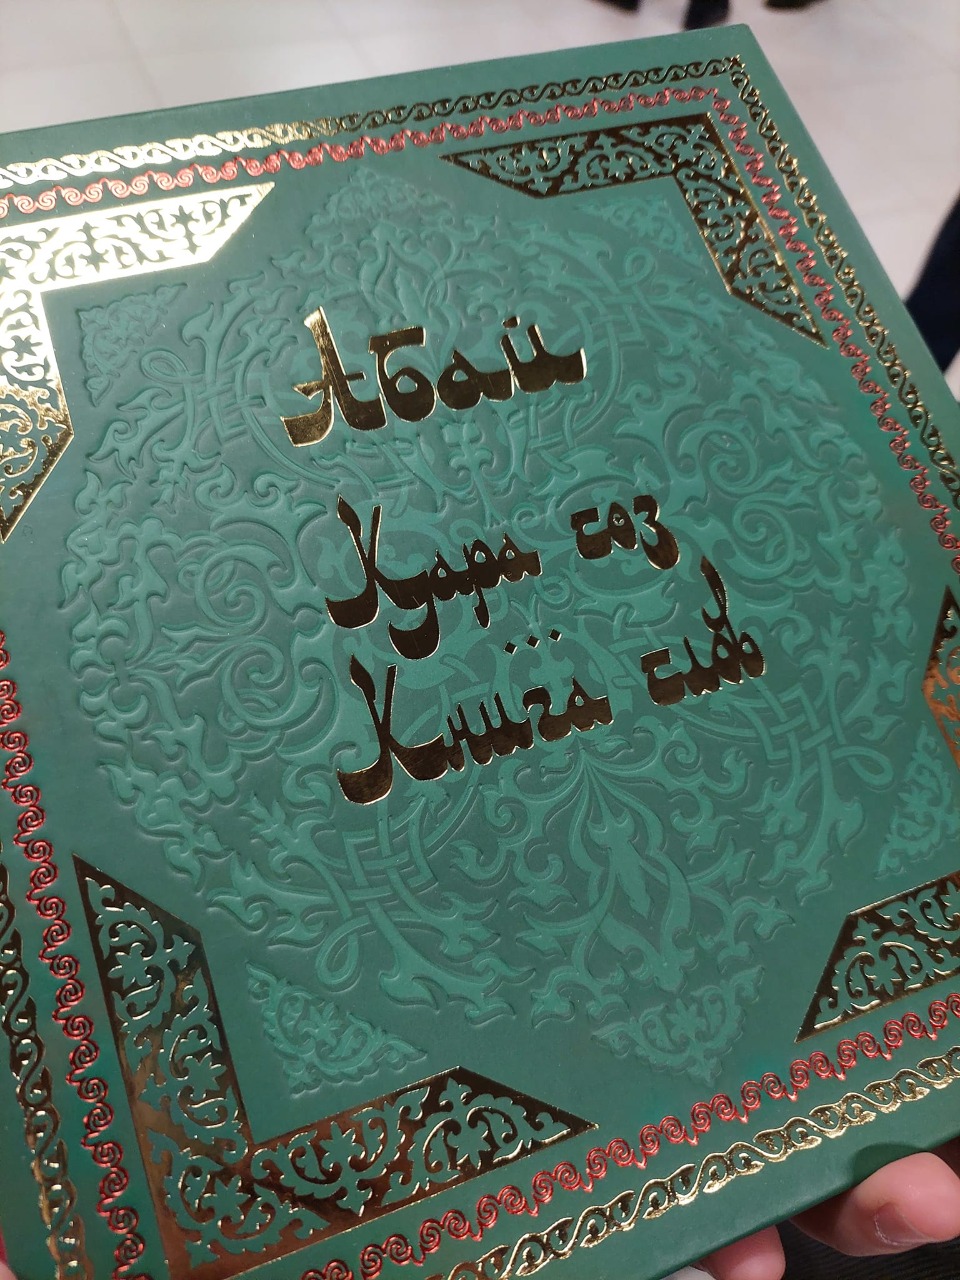 Абай
Қара сөз
Книга слов